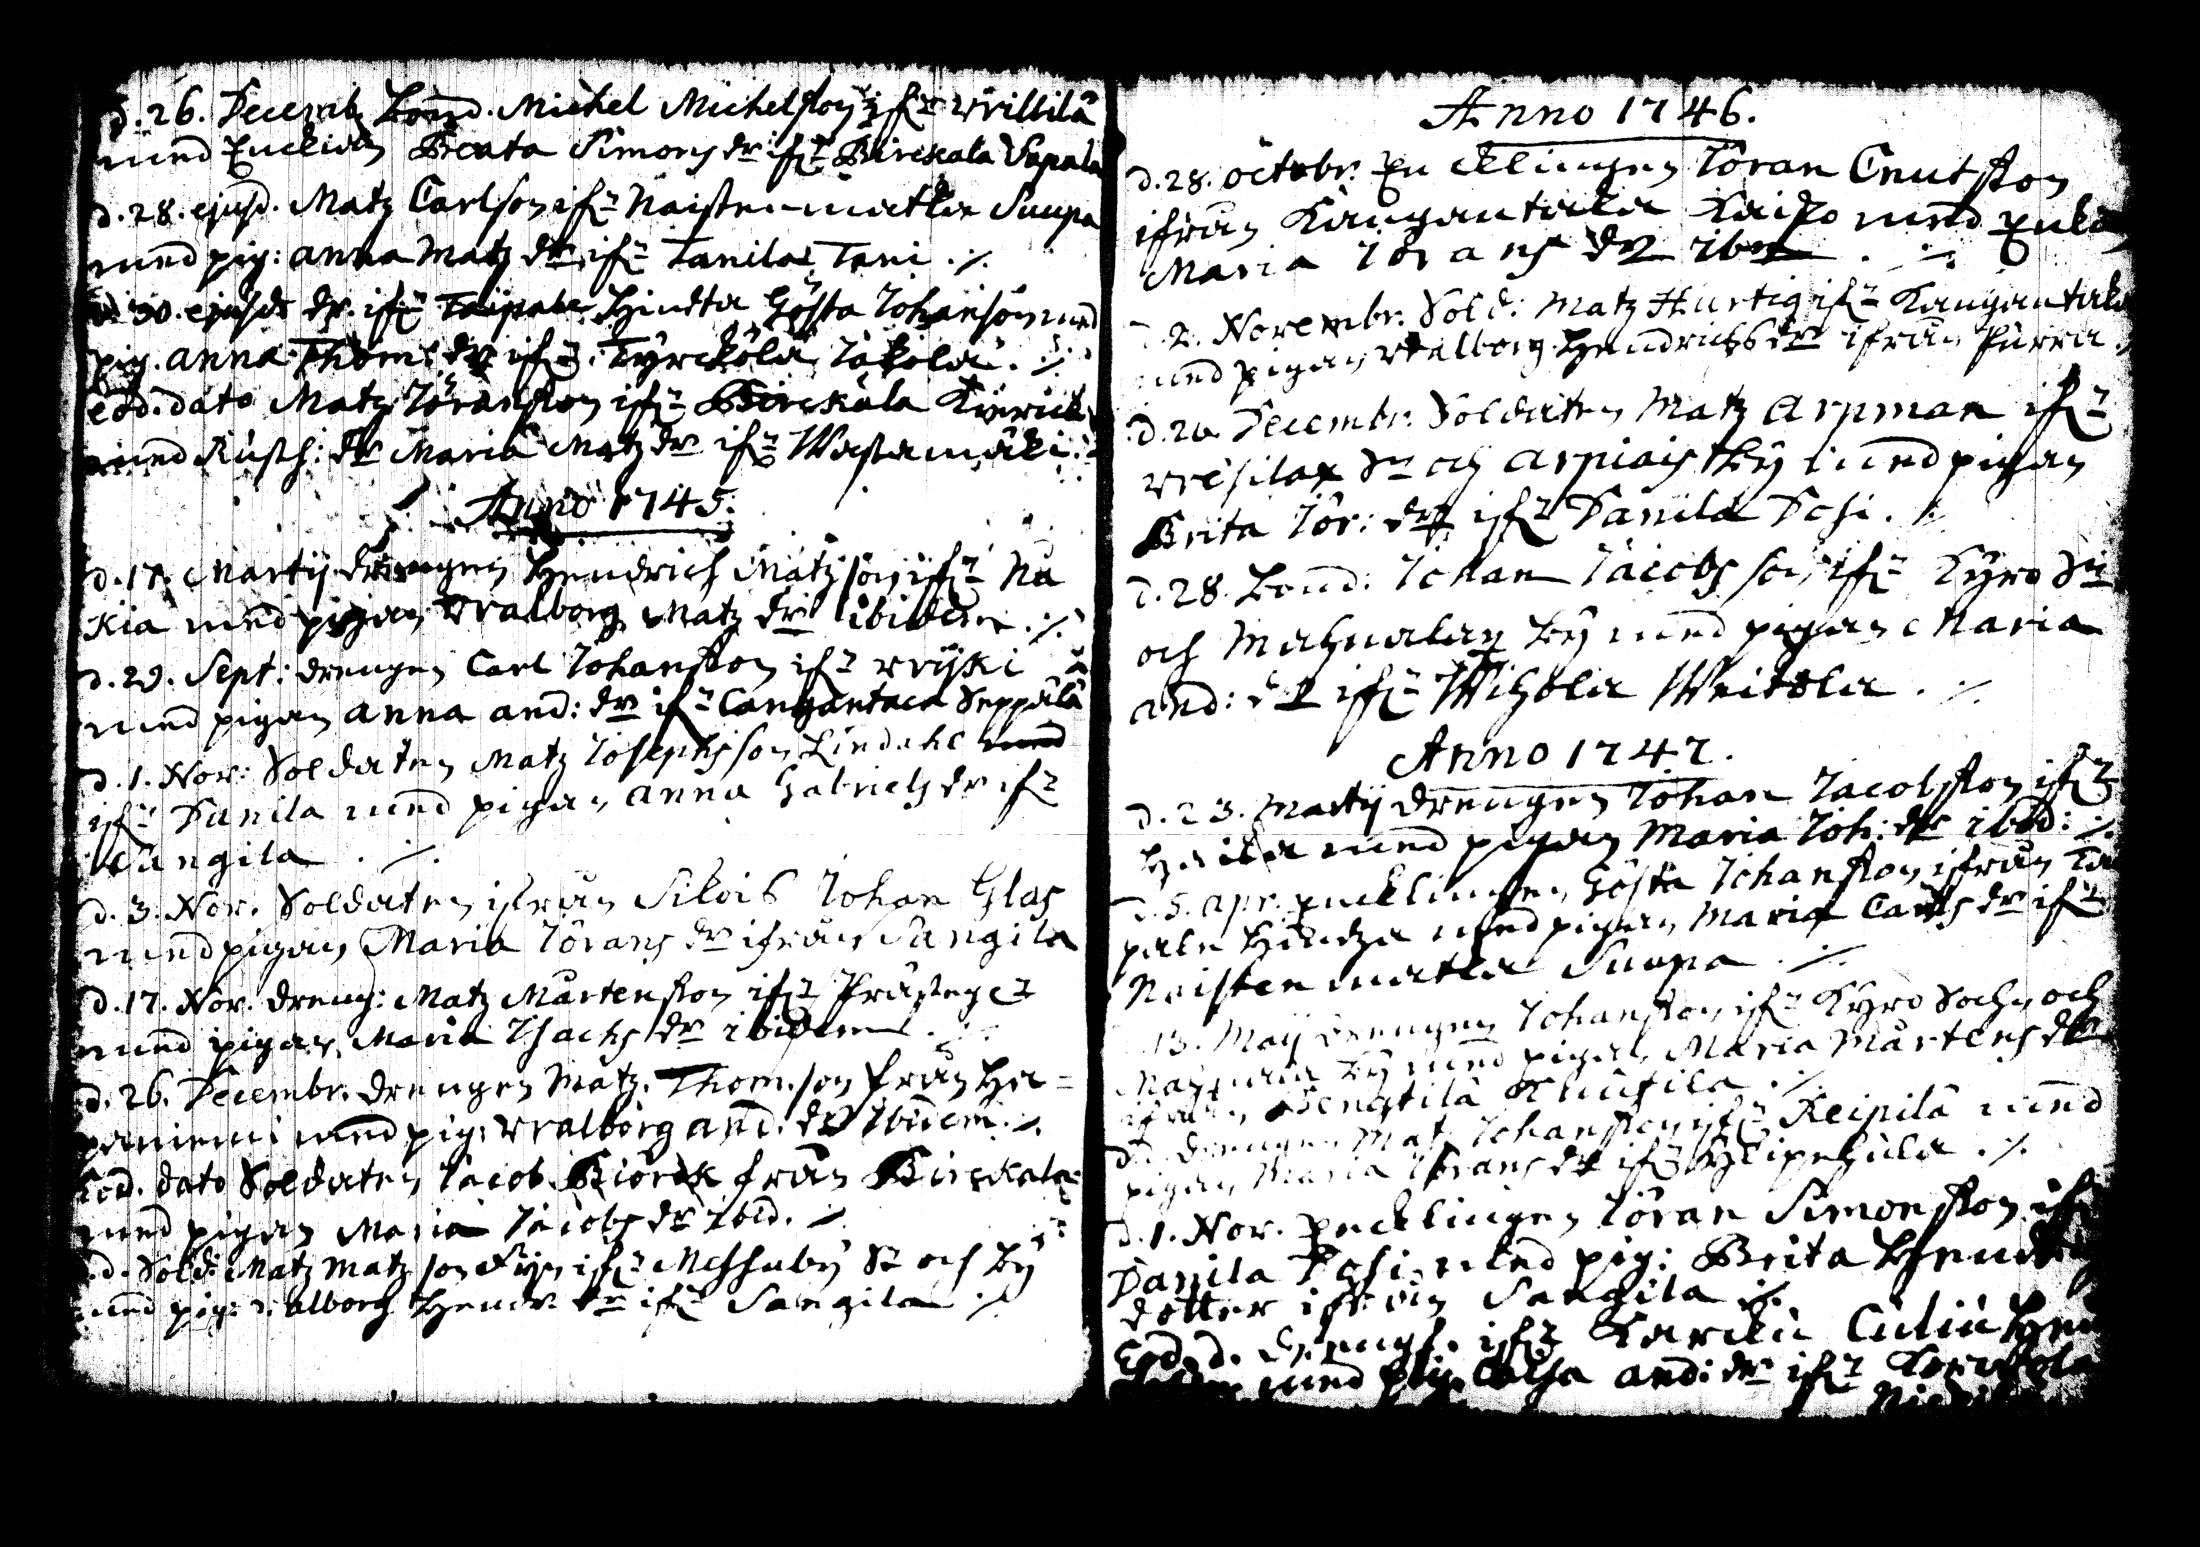 d. 26. Decemb. Bond. Michel Michelsson ifr. Willilä
med Enckian Beata Simons dr. ifr. Birckala Sapala
d. 28. ejusd. Matz Carlson ifr. Naistenmatka Suupa
med pig: anna Matz dr. ifr. Tanila Tani ./.
d. 30. ejusd. dr. ifr. Taipale Hindta Gösta Johanson med
pig. anna Thom: dr. ifr. Kyrckölä Jakola ./.
eod. dato Matz Jöransson ifr. Birckala
med Rusth: dr. Maria Matz dr. ifr. Wastamäki
Anno 1745.
d. 17. Martij drengen Hendrich Matzson ifr. No
kia med pigan Walborg Matz dr. ibidem ./.
d. 29. Sept: drengen Carl Johansson ifr.
med pigan anna and: dr. ifr. Cangantaca Seppälä
d. 1. Nov: Soldaten Matz Josephsson Lindahl med
ifr. Danila med pigan anna Gabriels dr. ifr.
Sangila ./.
d. 3. Nov. Soldaten ifrån Silois Johan Glas
med pigan Maria Jörans dr. ifrån Sangila
d. 17. Nov. dreng: Matz Mårtensson ifr. Prästeg
med pigan Maria Isachs dr. ibidem ./.
d. 26. Decembr. drengen Matz Thom.son från Ha=
paniemi med pig: Walborg and. dr. ibidem ./.
Eod. dato Soldaten Jacob Biörck från Birckala
med pigan Maria Jacobs dr. ibid. ./.
d. Sold: Matz Matzson ifr. Messuby Sn och By
med pig: Walborg Hendr. dr. ifr. Sangila ./.
Anno 1746.
d. 28. octobr. Encklingen Jöran Cnutsson
ifrån Kangantaka Kaiso med Enck
Maria Jörans dr ibm ./.
d. 2. Novembr. Sold: Matz Hurtig ifr. Kangantaka
med pigan Walborg Hendrichs dr. ifrån Purra
d. 26 Decembr: Soldaten Matz Arpman ifr.
Wesilax Sn och Arpiais By med pigan
Brita Jör: dr. ifr. Danila Pesi ./.
d. 28. Bond: Johan Jacobsson ifr. Kyro Sn
och Mahnalan By med pigan Maria
and: dr ifr. Wihola Weitola ./.
Anno 1747.
d. 23. Martij drengen Johan Jacobsson ifr.
Haikа med pigan Maria Joh: dr. ibid: ./.
d. 5. apr. encklingen Gösta Johansson ifrån Tai
pale Hindza med pigan Maria Carls dr. ifr.
Naistenmatka Suupa ./.
13. Maij drengen Johansson ifr. Kyro Sochn och
By med pigan Maria Mårtens dr.
Bengtilä ./.
d. d. drengen Mat. Johansson ifr. Reipilä med
pigan Maria Jörans dr. ifr. ./.
d. 1. Nov. Encklingen Jöran Simonsson ifr
Danila Pesi med pig: Brita Hendr
dotter ifrån Sangila ./.
Eod. d. dreng. ifr. Karcku Culiu Hen
med pig. Caisa and: dr. ifr.